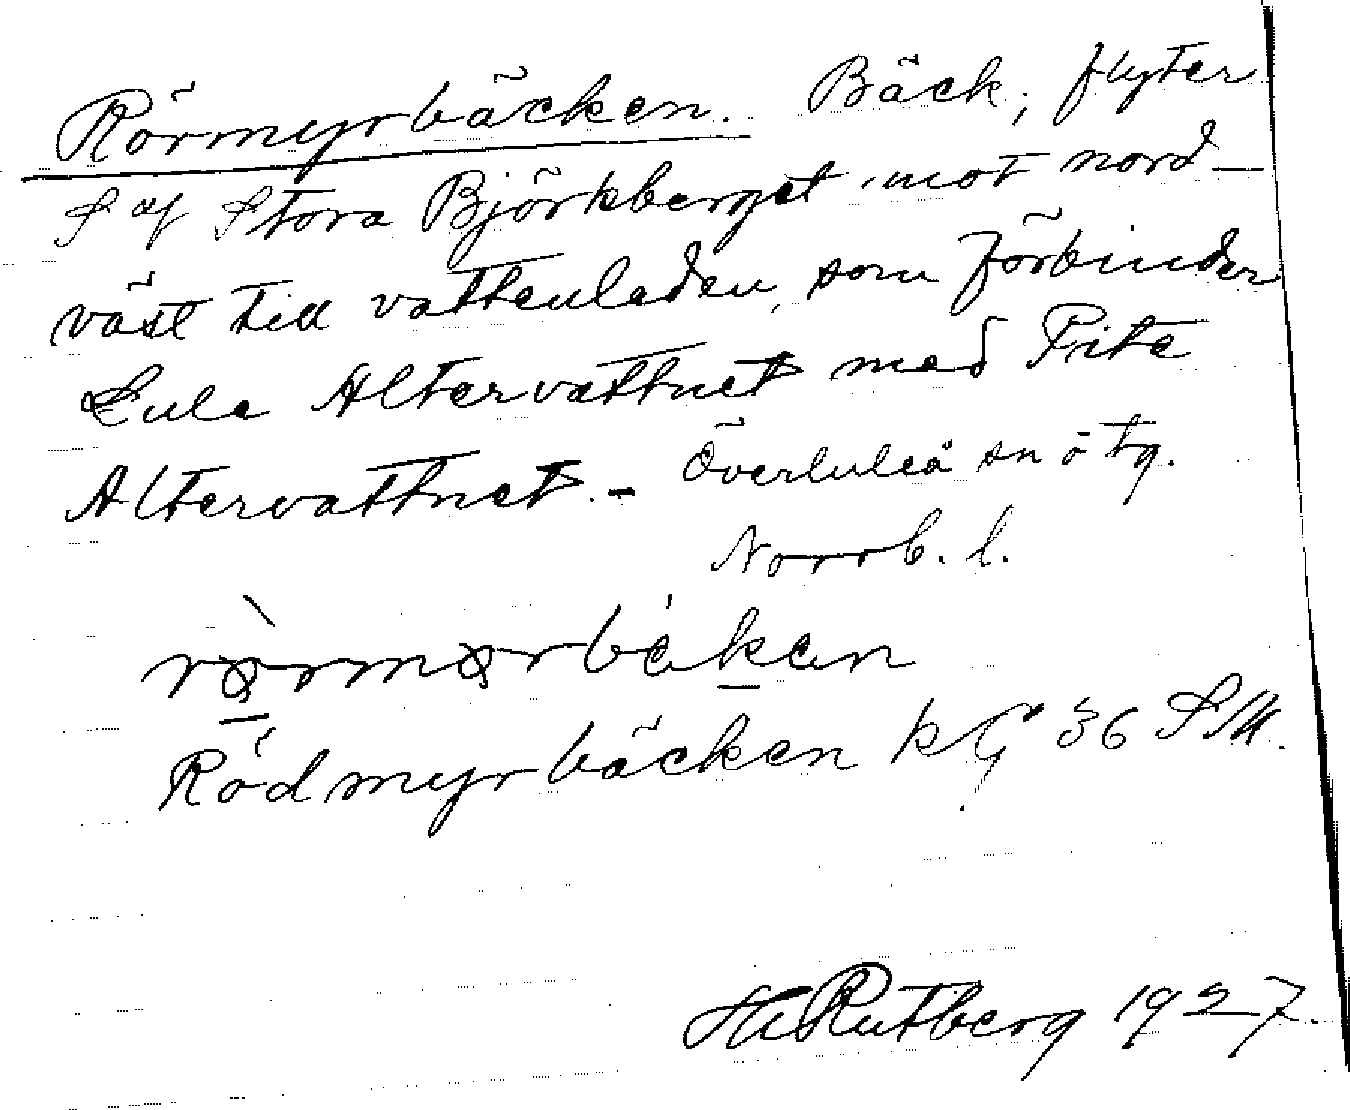 Rörmyrbäcken. Bäck, flyter
S of Stora Björkberget mot nord-
väst till vattenleden, som förbinder
Lule Altervattnet med Pite
Altervattnet. - Överluleå sn ö tg.
Norrb. l.
rørmørbäkan
Rödmyrbäcken kG 36 SM.
HRutberg 1927.